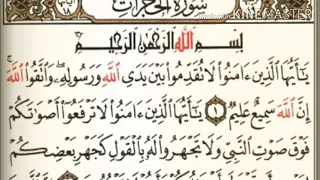 سُورَةُ الْحُجُرَاتِ
KINEMASTER
بِسْمِ اللَّهِ الرَّحْمَٰنِ الرَّحِيمِ
يَا أَيُّهَا الَّذِينَ آمَنُوا لَا تُقَدِّمُوا بَيْنَ يَدَيِ اللَّهِ وَرَسُولِهِ ۖ وَاتَّقُوا اللَّهَ ۚ
إِنَّ اللَّهَ سَمِيعٌ عَلِيمٌ ١ يَا أَيُّهَا الَّذِينَ آمَنُوا لَا تَرْفَعُوا أَصْوَاتَكُمْ
فَوْقَ صَوْتِ النَّبِيِّ وَلَا تَجْهَرُوا لَهُ بِالْقَوْلِ كَجَهْرِ بَعْضِكُمْ